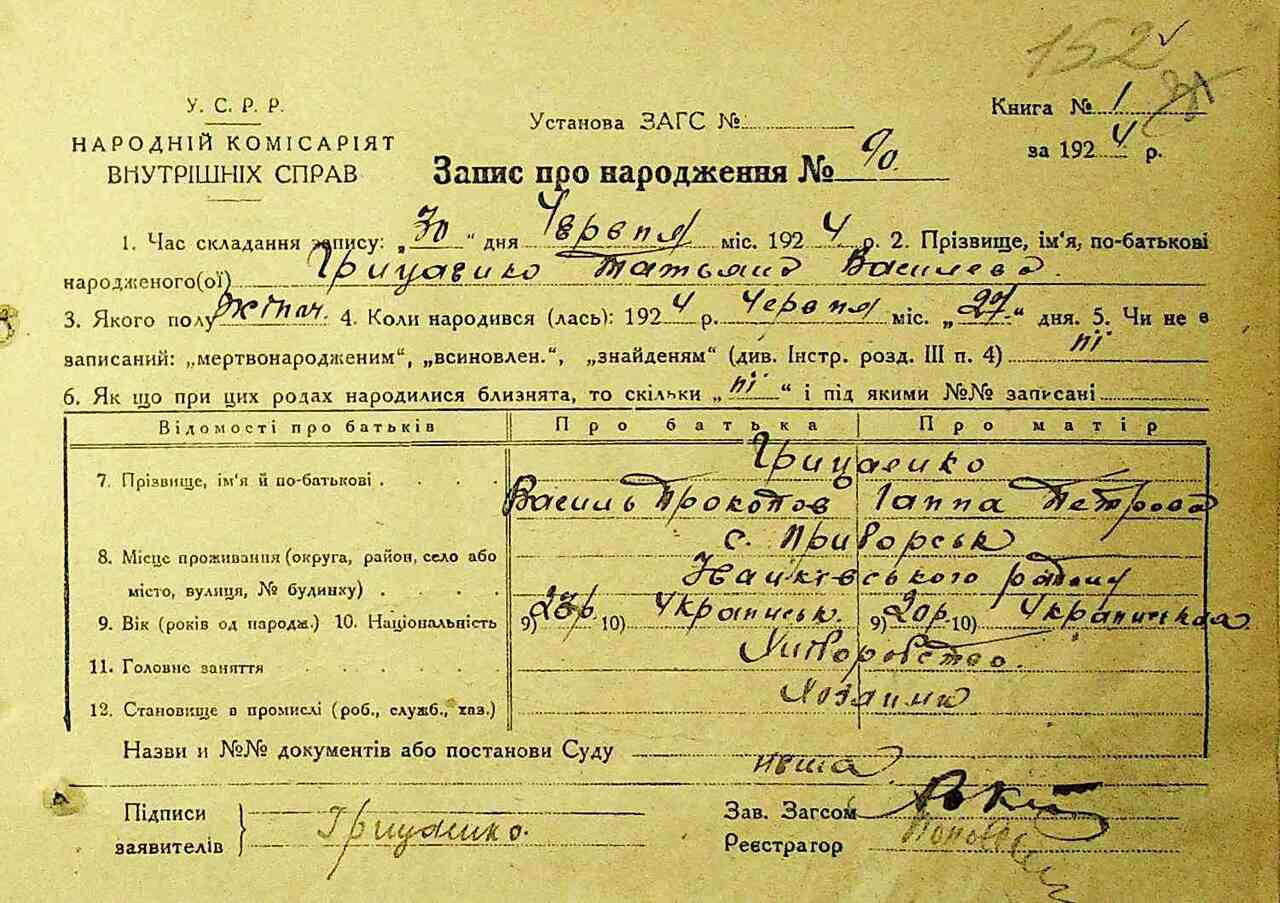 152
У. С. Р. Р.
НАРОДНІЙ КОМІСАРІЯТ
ВНУТРІШНІХ СПРАВ
Установа ЗАГС №
Книга № 1
за 1924 р.
Запис про народження № 90.
1. Час складання запису: „30“ дня Червня міс. 1924 р. 2. Прізвище, ім‘я, по-батькові
народженого(ої) Грицаенко Татьяна Василева.
3. Якого полу жіноч. 4. Коли народився (лась): 1924 р. Червня міс. „27“ дня. 5. Чи не є
записаний: „мертвонародженим“, „всиновлен.“, „знайденям“ (див. Інстр. розд. III п. 4) ні
6. Як що при цих родах народилися близнята, то скільки „ні“ і під якими №№ записані
Відомості про батьків Про батька Про матір
Грицаенко
7. Прізвище, ім‘я й по-батькові Василь Прокопов Ганна Петрова
с. Приворськ
8. Місце проживання (округа, район, село або
місто, вулиця, № будинку) району
9. Вік (років од народж.) 10. Національність 9) 23 р. 10) Украинськ. 9) 20 р. 10) Украинськая
11. Головне заняття Хліборобство.
12. Становище в промислі (роб., служб., хаз.) Хозаини
Назви и №№ документів або постанови Суду
Підписи
заявителів Грицаенко.
Зав. Загсом
Реєстратор